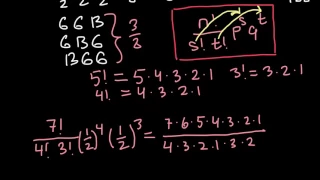 6 6 B 3
6 B 6 3
B 6 6
n! s t
s! t! p q
5! = 5·4·3·2·1 3! = 3·2·1
4! = 4·3·2·1
7! / 4! 3! (1/2)^4 (1/2)^3 = 7·6·5·4·3·2·1 / 4·3·2·1·3·2